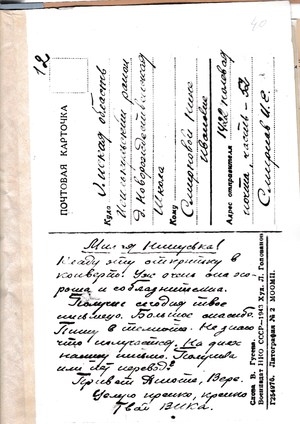 12
40
ПОЧТОВАЯ КАРТОЧКА
Куда Омская область
Исилькульский район
д. Новорождественская
Школа
Кому Смирновой Нине
Ивановне
Адрес отправителя 1422 полевая
почта, часть
Смирнов И.С.
Милая Нинусика!
Кладу эту открытку в
конверт. Уж очень она хо-
роша и соблазнительна.
Получил сегодня твое
письмецо. Большое спасибо.
Пишу в темноте. Не знаю
что получается. На днях
напишу письмо. Получила
или нет перевод?
Привет Вере.
Целую крепко, крепко
Твой
Слова В. Гусева. Худ. Л. Голованов
Воениздат НКО СССР—1943
Г254970. Литография № 2 МООМП.